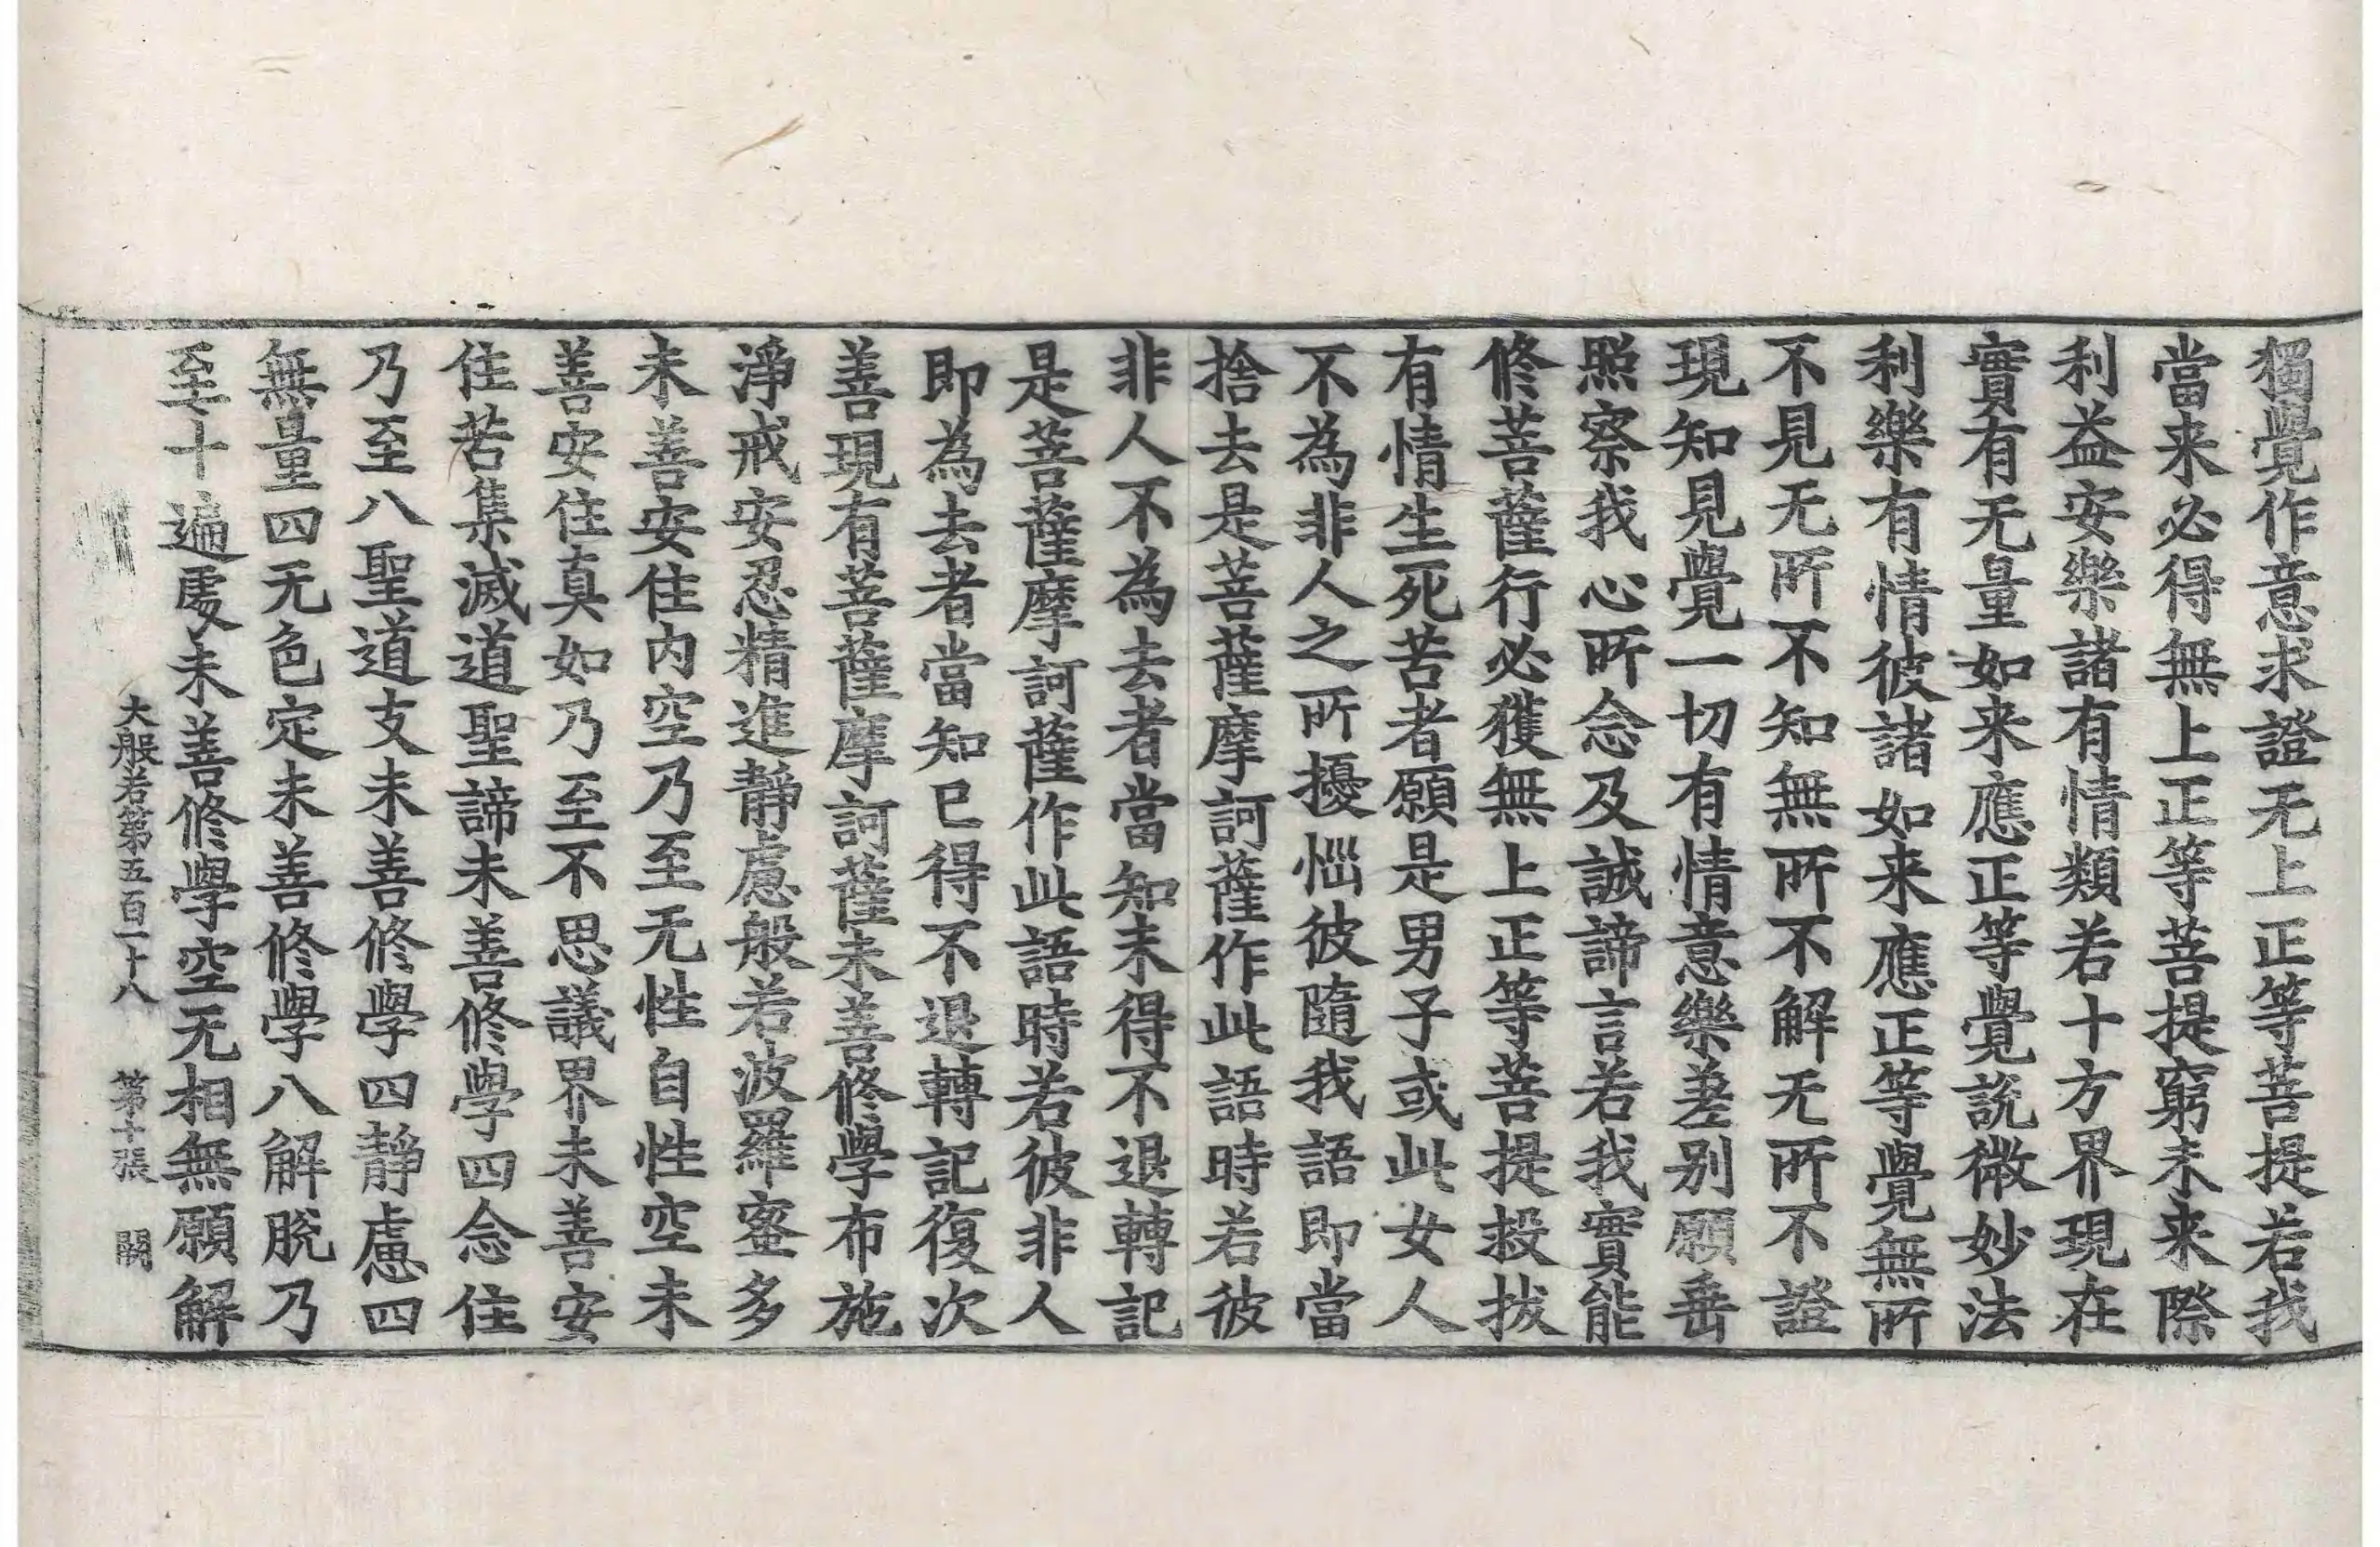 獨覺作意求證无上正等菩提若我
當来必得無上正等菩提窮未来際
利益安樂諸有情類若十方界現在
實有无量如来應正等覺說微妙法
利樂有情彼諸如来應正等覺無所
不見无所不知無所不解无所不證
現知見覺一切有情意樂差别願垂
照察我心所念及誠諦言若我實能
修菩薩行必獲無上正等菩提投拔
有情生死苦者願是男子或此女人
不為非人之所擾惱彼隨我語即當
捨去是菩薩摩訶薩作此語時若彼
非人不為去者當知未得不退轉記
是菩薩摩訶薩作此語時若彼非人
即為去者當知已得不退轉記復次
善現有菩薩摩訶薩未善修學布施
淨戒安忍精進靜慮般若波羅蜜多
未善安住內空乃至无性自性空未
善安住真如乃至不思議界未善安
住苦集滅道聖諦未善修學四念住
乃至八聖道支未善修學四靜慮四
無量四无色定未善修學八解脫乃
至十遍處未善修學空无相無願解
大般若第五百二十八 第十張 闕